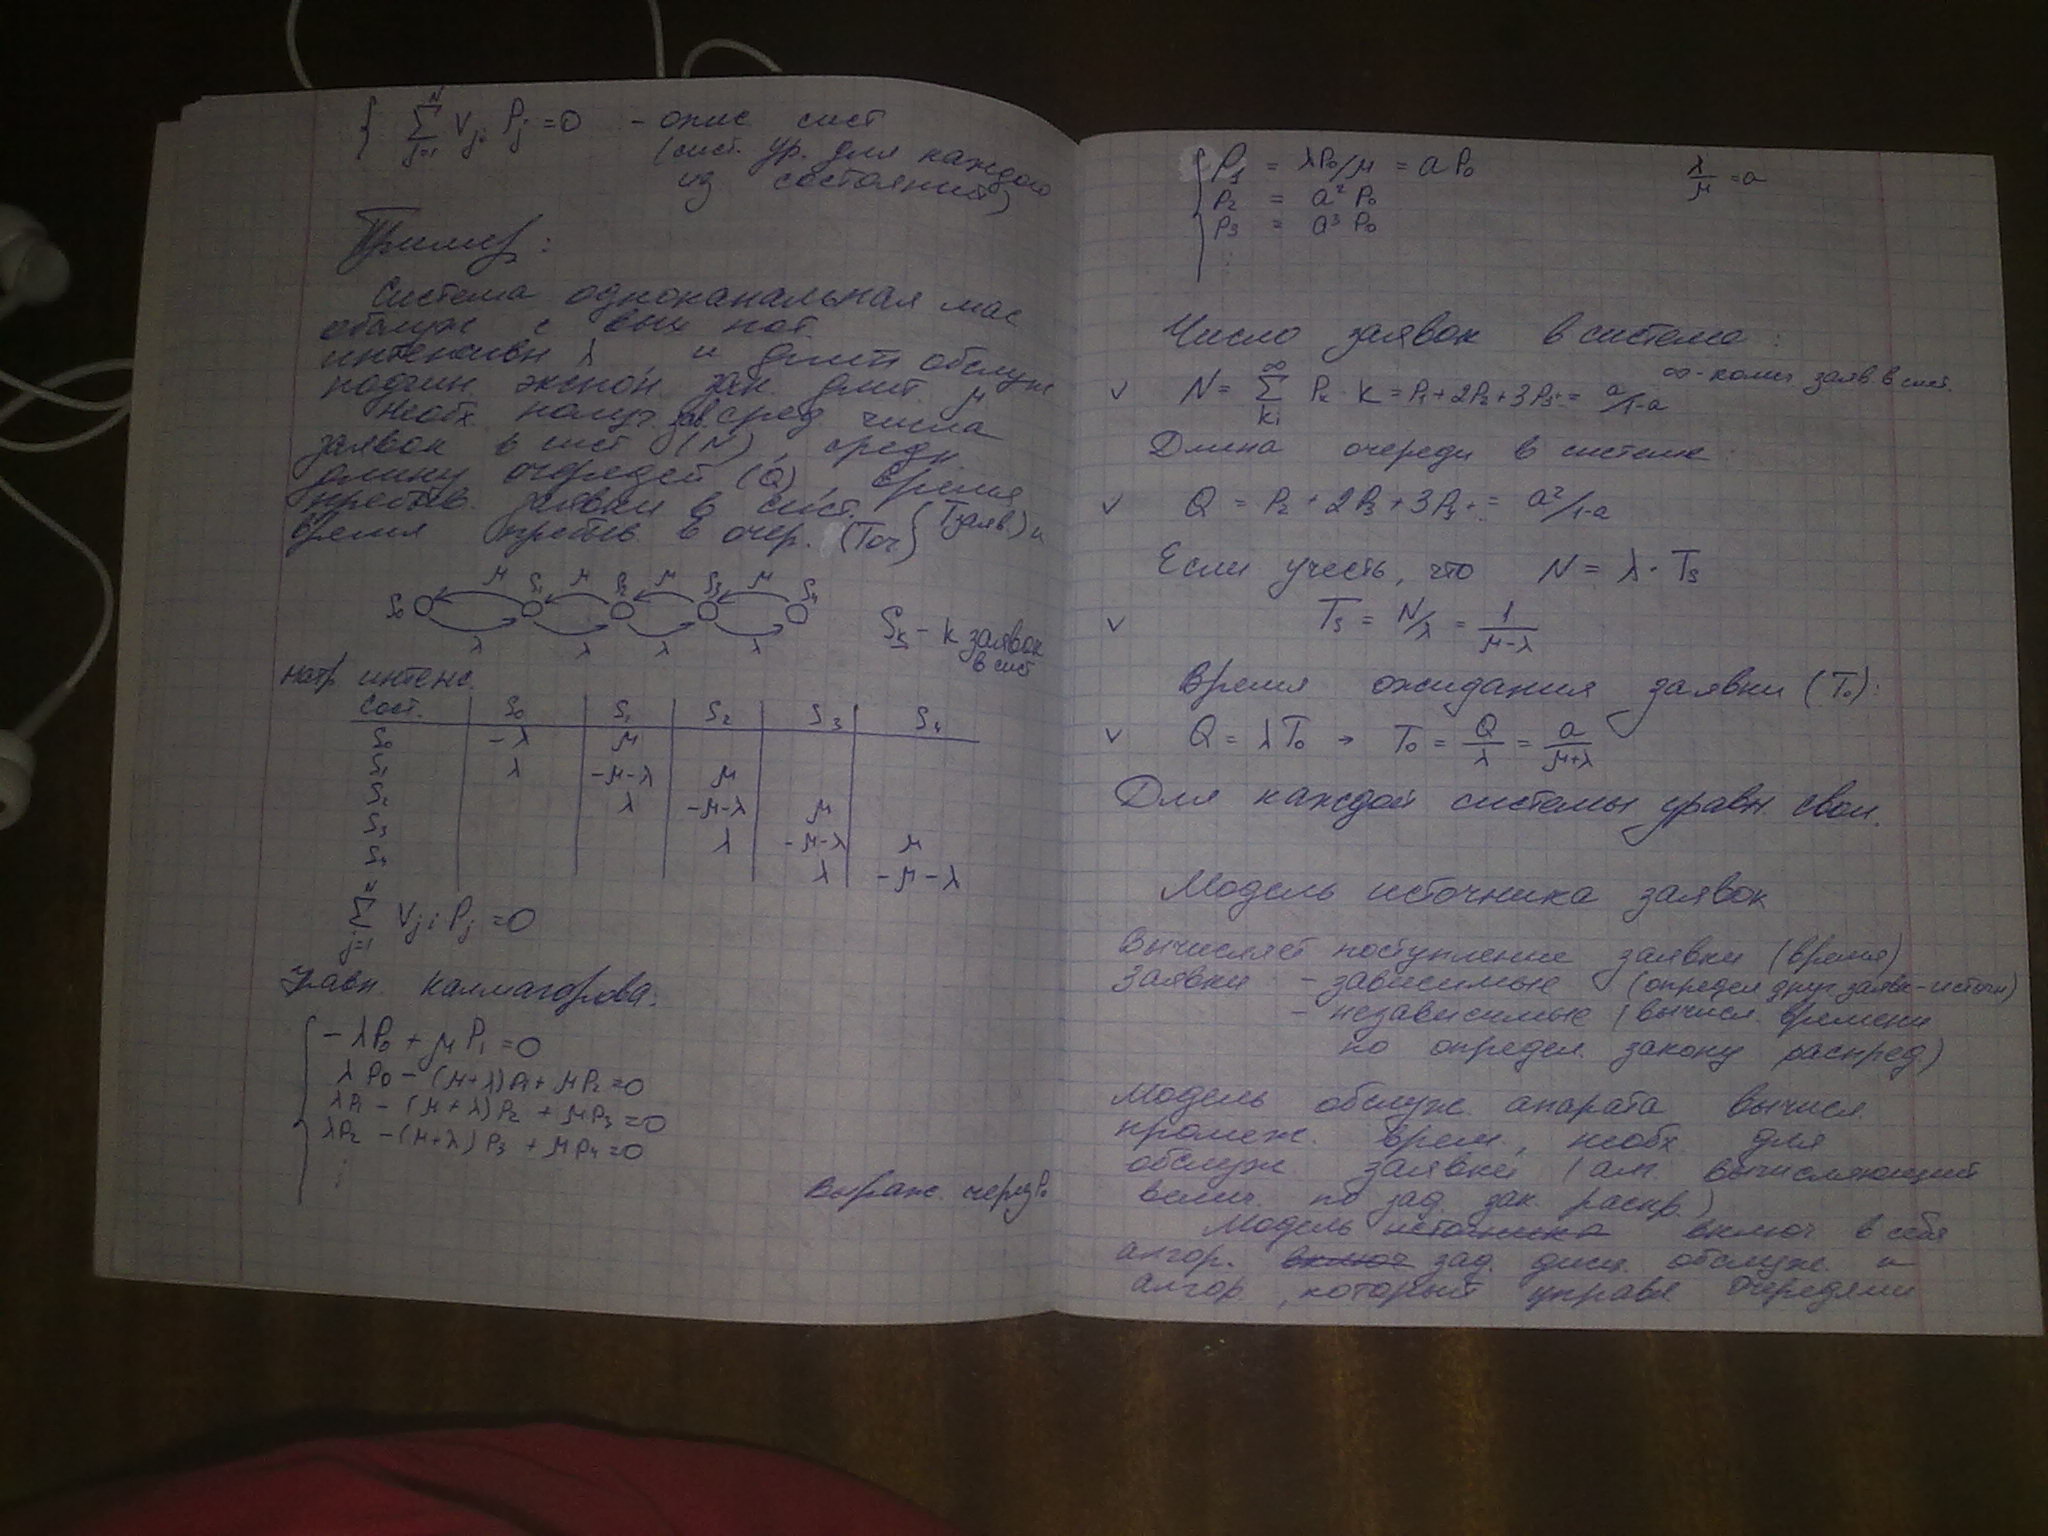 { N Σ j=1 Vji Pj = 0 - опис сист
(сист. ур. для каждого
из состояний)
Пример:
Система одноканальная мас
обслуж с вых пот
интенсивн λ и длит обслуж
подчин экспон. зак. длит. μ
Необх. получ. зав. сред числа
заявок в сист (N), средн.
длину очередей (Q), время
пребыв. заявки в сист. (Tзаяв) и
время пребыв в очер. (Tоч)
μ S1 μ P2 μ S3 μ S4
S0
λ λ λ λ
Sk - k заявок
в сист
Матр интенс.
Сост. S0 S1 S2 S3 S4
S0 -λ μ
S1 λ -μ-λ μ
S2 λ -μ-λ μ
S3 λ -μ-λ μ
S4 λ -μ-λ
N Σ j=1 Vji Pj = 0
Уравн. Калмагорова.
-λP0 + μP1 = 0
λP0 - (μ+λ)P1 + μP2 = 0
λP1 - (μ+λ)P2 + μP3 = 0
λP2 - (μ+λ)P3 + μP4 = 0
⋮
Выраж. через P0
P1 = λP0/μ = aP0 λ/μ = a
P2 = a² P0
P3 = a³ P0
⋮
Число заявок в системе:
∞ - колич заяв. в сист.
∨ N = ∞ Σ ki Pk · k = P1 + 2P2 + 3P3+ = a/1-a
Длина очереди в системе
∨ Q = P2 + 2P3 + 3P4+ = a²/1-a
Если учесть, что N = λ · Ts
∨ Ts = N/λ = 1/μ-λ
Время ожидания заявки (To):
∨ Q = λTo → To = Q/λ = a/μ+λ
Для каждой системы уравн. свои.
Модель источника заявок
Вычисляет поступление заявки (время)
Заявки - зависимые (определ друг. заявк-источн)
- независимые (вычисл. времени
по определ. закону распред)
Модель обслуж. апарата вычисл.
промеж. врем., необх. для
обслуж заявки (алг. вычисляющий
велич. по зад. зак. распр.)
Модель источника включ в себя
алгор. включ зад. дисц. обслуж. и
алгор., который управл очередями